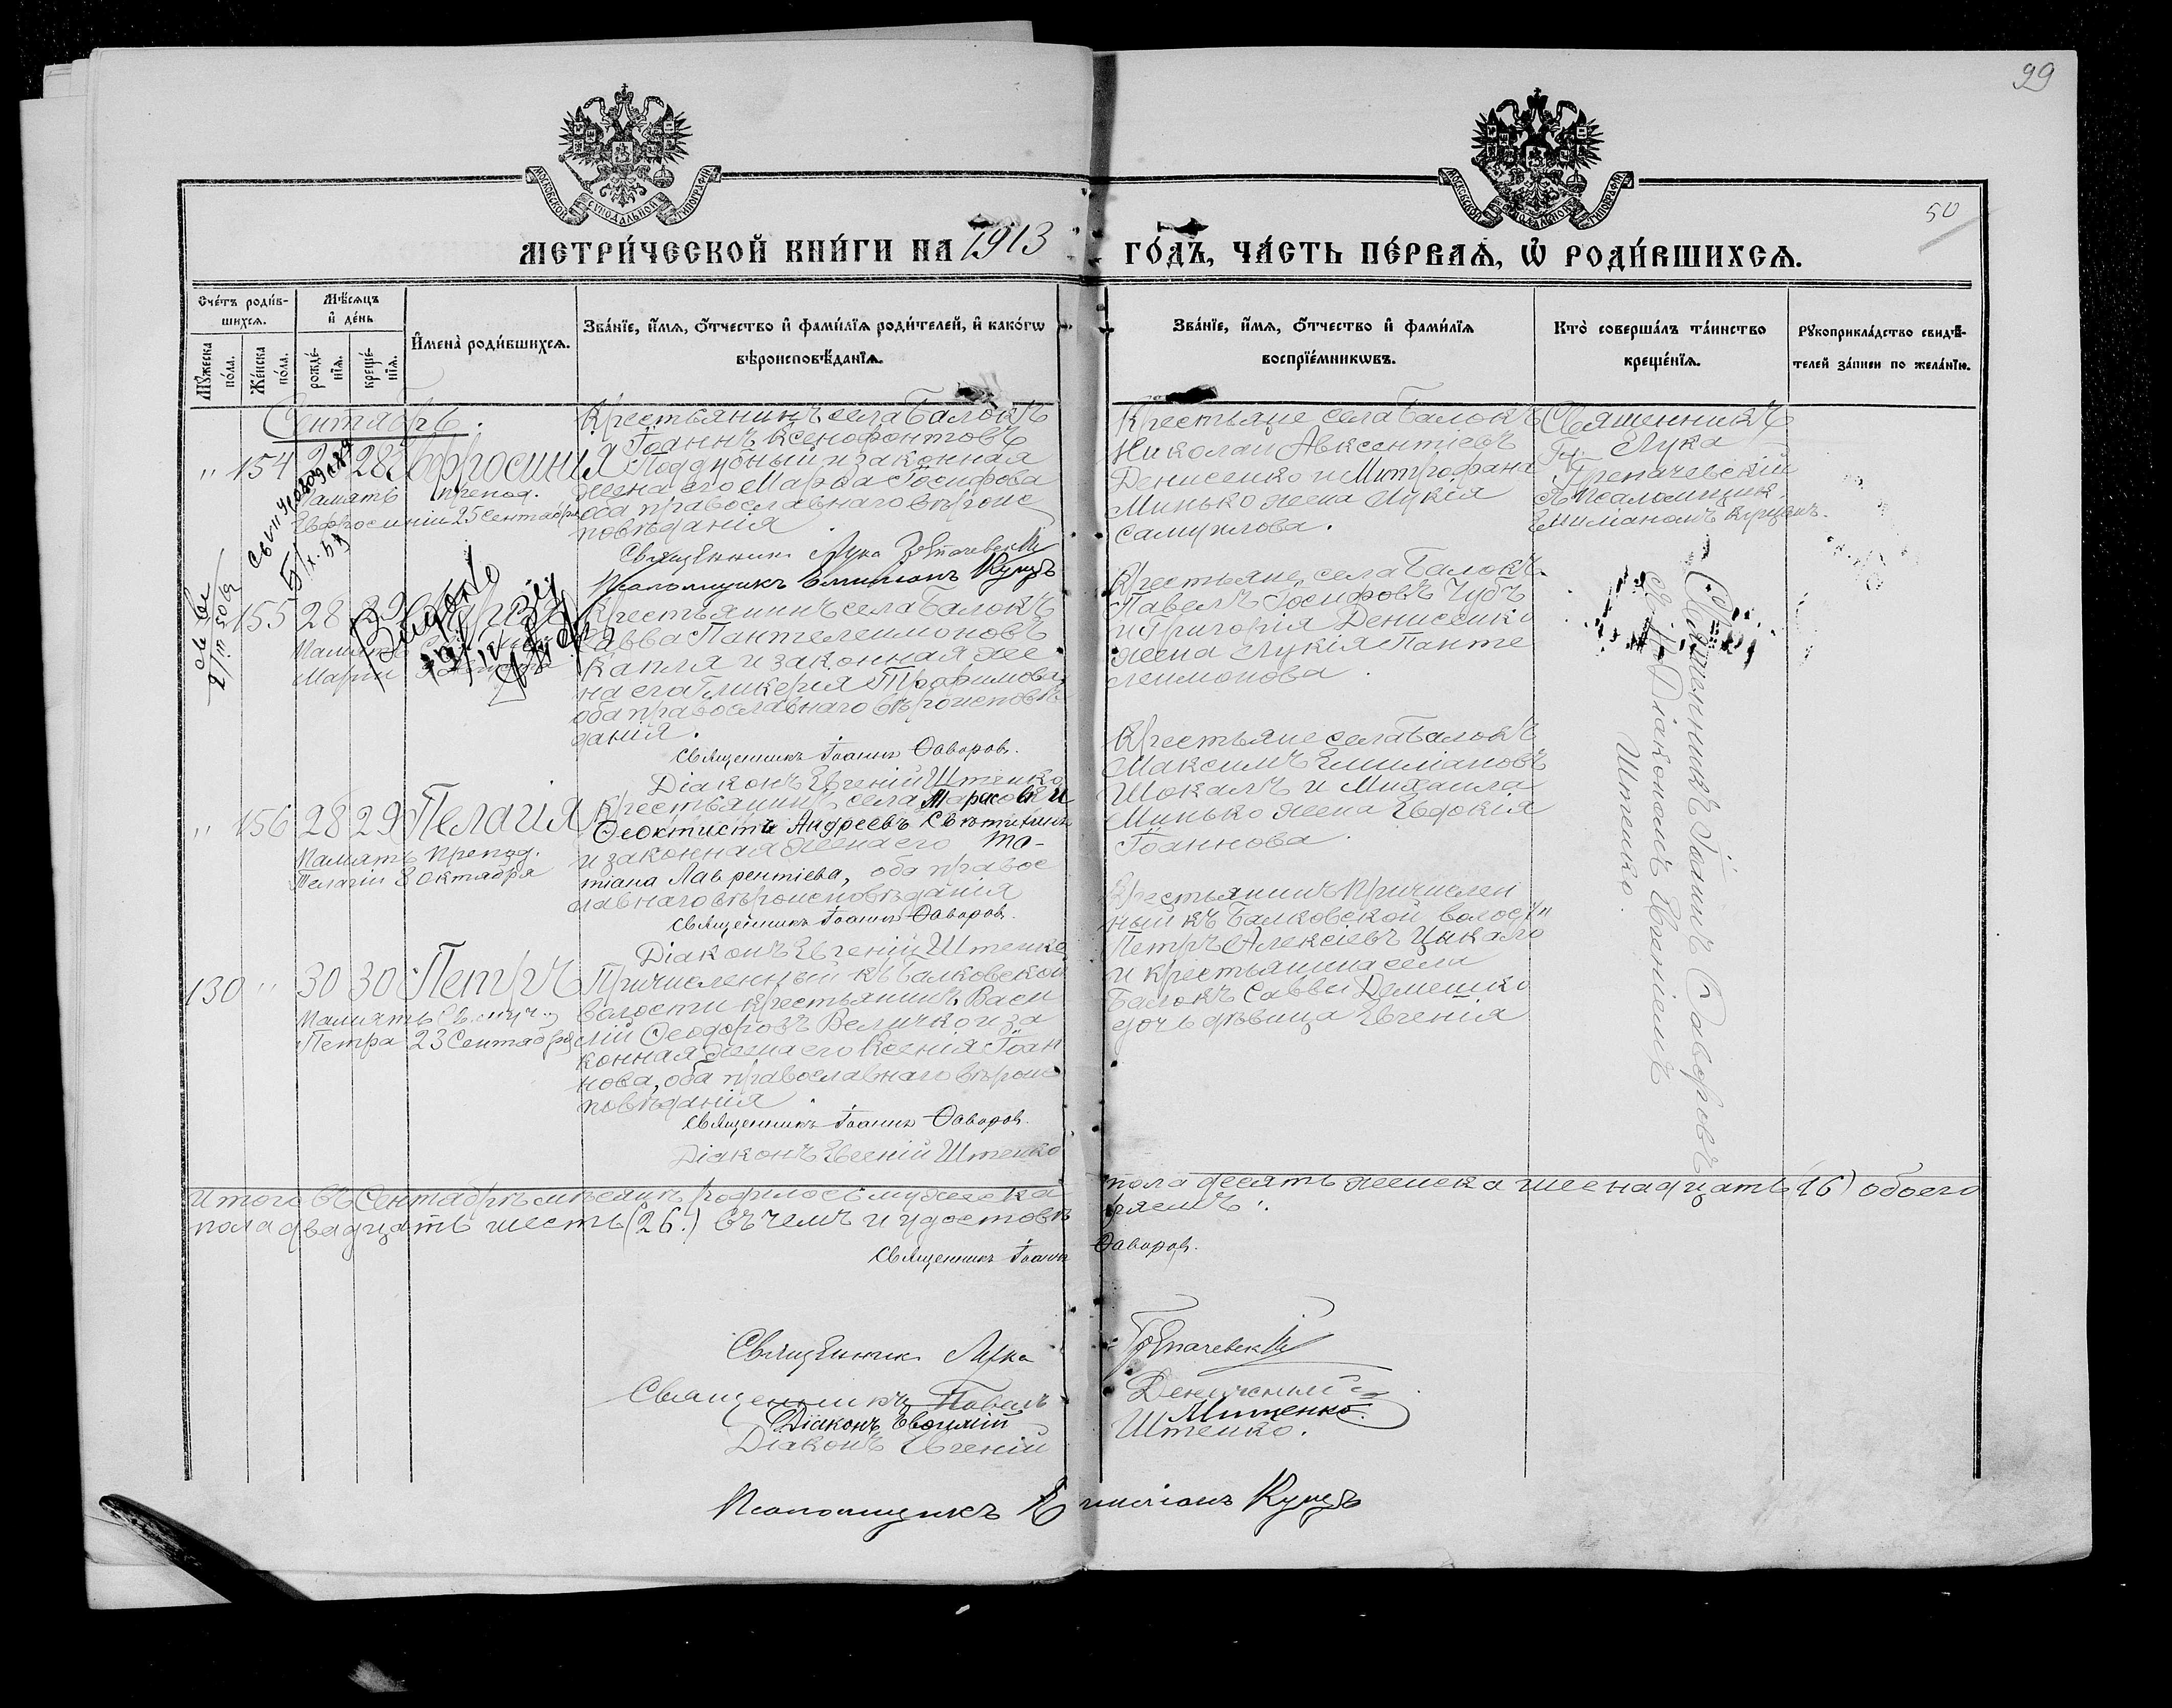 99
50
МОСКОВСКОЙ СѴНОДАЛЬНОЙ ТИПОГРАФІИ
МОСКОВСКОЙ СѴНОДАЛЬНОЙ ТИПОГРАФІИ
МЕТРИ́ЧЕСКОЙ КНИ́ГИ НА 1913 ГО́ДЪ, ЧА́СТЬ ПЕ́РВАѦ, Ѡ РОДИ́ВШИХСѦ.
Сче́тъ роди́в-
шихсѧ.
Мꙋ́жеска по́ла.
Же́нска по́ла.
Мѣ́сѧцъ
и҆ де́нь
рожде́-
нїѧ.
креще́-
нїѧ.
И҆мена̀ роди́вшихсѧ.
Зва́нїе, и҆́мѧ, ѻ҆́тчество и҆ фами́лїѧ роди́телей, и҆ како́гѡ
вѣроисповѣ́данїѧ.
Зва́нїе, и҆́мѧ, ѻ҆́тчество и҆ фами́лїѧ
воспрїе́мникѡвъ.
Кто̀ соверша́лъ та́инство
креще́нїѧ.
Рꙋкоприкла́дство свидѣ́-
телей за́писи по жела́нїю.
Сентябрь.
" 154 28 Евфросинія
Память препод.
Евфросиніи 25 Сентября
Крестьянинъ села Балокъ
Іоаннъ Ксенофонтовъ
Поддубный и законная
жена его Марѳа Іосифова
оба православнаго вѣроис
повѣданія
Священник Лука Грепачевскій
Псаломщикъ Емиліанъ Купцъ
Крестьяне села Балокъ
Николай Авксентіевъ
Денисенко и Митрофана
Минько жена Лукія
Самуилова.
Священникъ
Лука
Грепачевскій
съ Псаломщик.
Емиліаномъ Купцомъ.
155 28 29
Память
Маріи
Крестьянинъ села Балокъ
Савва Пантелеимоновъ
Капля и законная же
на его Гликерія Трофимова
оба православнаго вѣроисповѣ
данія.
Священникъ Іоаннъ Ѳаворовъ.
Діаконъ Евгеній Штепко
Крестьяне села Балокъ
Павелъ Іосифовъ Чубъ
и Григорія Денисенко
жена Лукія Панте
леимонова.
Священникъ Іоаннъ Ѳаворовъ
съ Діакономъ Евгеніемъ
Штепко.
" 156 28 29 Пелагія
Память препод.
Пелагіи 8 Октября
Крестьянинъ села Марковки
Ѳеоктистъ Андреевъ
и законная жена его Та-
тіана Лаврентіева, оба правос
лавнаго вѣроисповѣданія
Священникъ Іоаннъ Ѳаворовъ.
Діаконъ Евгеній Штепко
Крестьяне села Балокъ
Максимъ Емиліановъ
Шокалъ и Михаила
Минько жена Евдокія
Іоаннова.
130 " 30 30 Петръ
Память Св. муч.
Петра 23 Сентября
Причисленный къ Балковской
волости крестьянинъ Васи
лій Ѳеодоровъ Величко и за
конная жена его Ксенія Іоан
нова, оба православнаго вѣроис
повѣданія.
Священникъ Іоаннъ Ѳаворовъ.
Діаконъ Евгеній Штепко
Крестьянинъ причислен
ный къ Балковской волости
Петръ Алексіевъ Цыкало
и крестьянина села
Балокъ Саввы Демешко
дочь дѣвица Евгенія
Итого въ Сентябрѣ мѣсяцѣ родилось мужеска пола десять женска шеснадцать (16) обоего
пола двадцать шесть (26.) въ чемъ и удостовѣряемъ:
Священникъ Іоаннъ Ѳаворовъ.
Священник Лука Грепачевскій
Священникъ Павелъ
Діаконъ Митенко
Діаконъ Евгеній Штепко.
Псаломщикъ Емиліанъ Купцъ